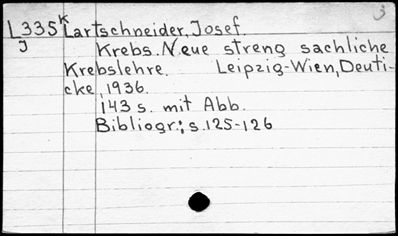 3
L335K Lartschneider, Josef.
J Krebs. Neue streng sachliche
Krebslehre. Leipzig-Wien, Deuti-
cke, 1936.
143 s. mit Abb.
Bibliogr.: s. 125-126